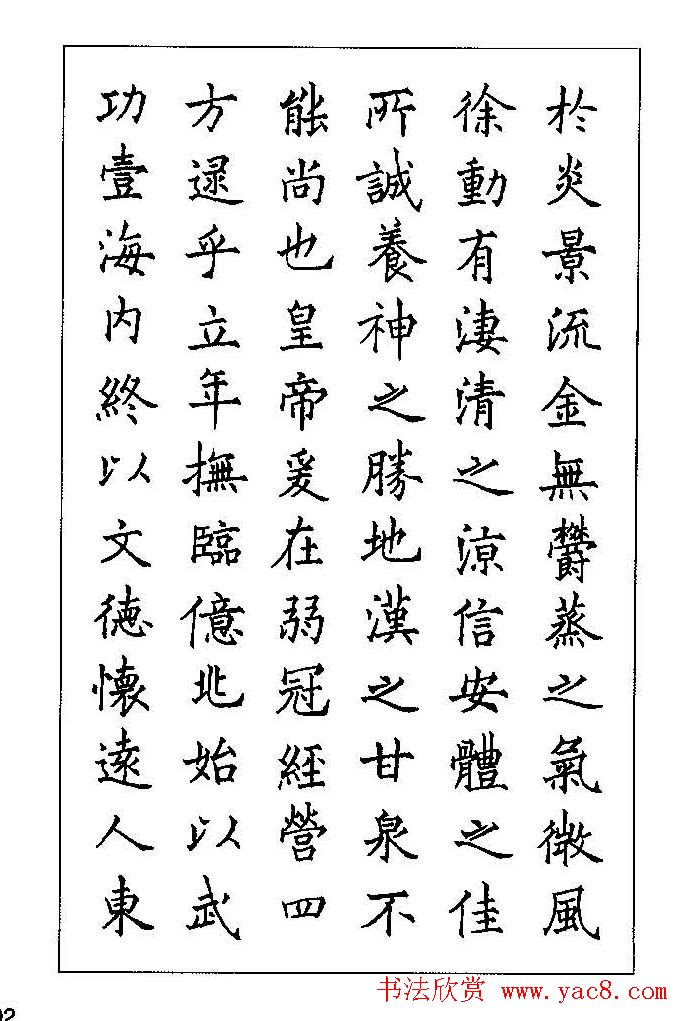 於炎景流金無鬱蒸之氣微風
徐動有淒清之涼信安體之佳
所誠養神之勝地漢之甘泉不
能尚也皇帝爰在弱冠經營四
方逮乎立年撫臨億兆始以武
功壹海內終以文德懷遠人東
书法欣赏 www.yac8.com